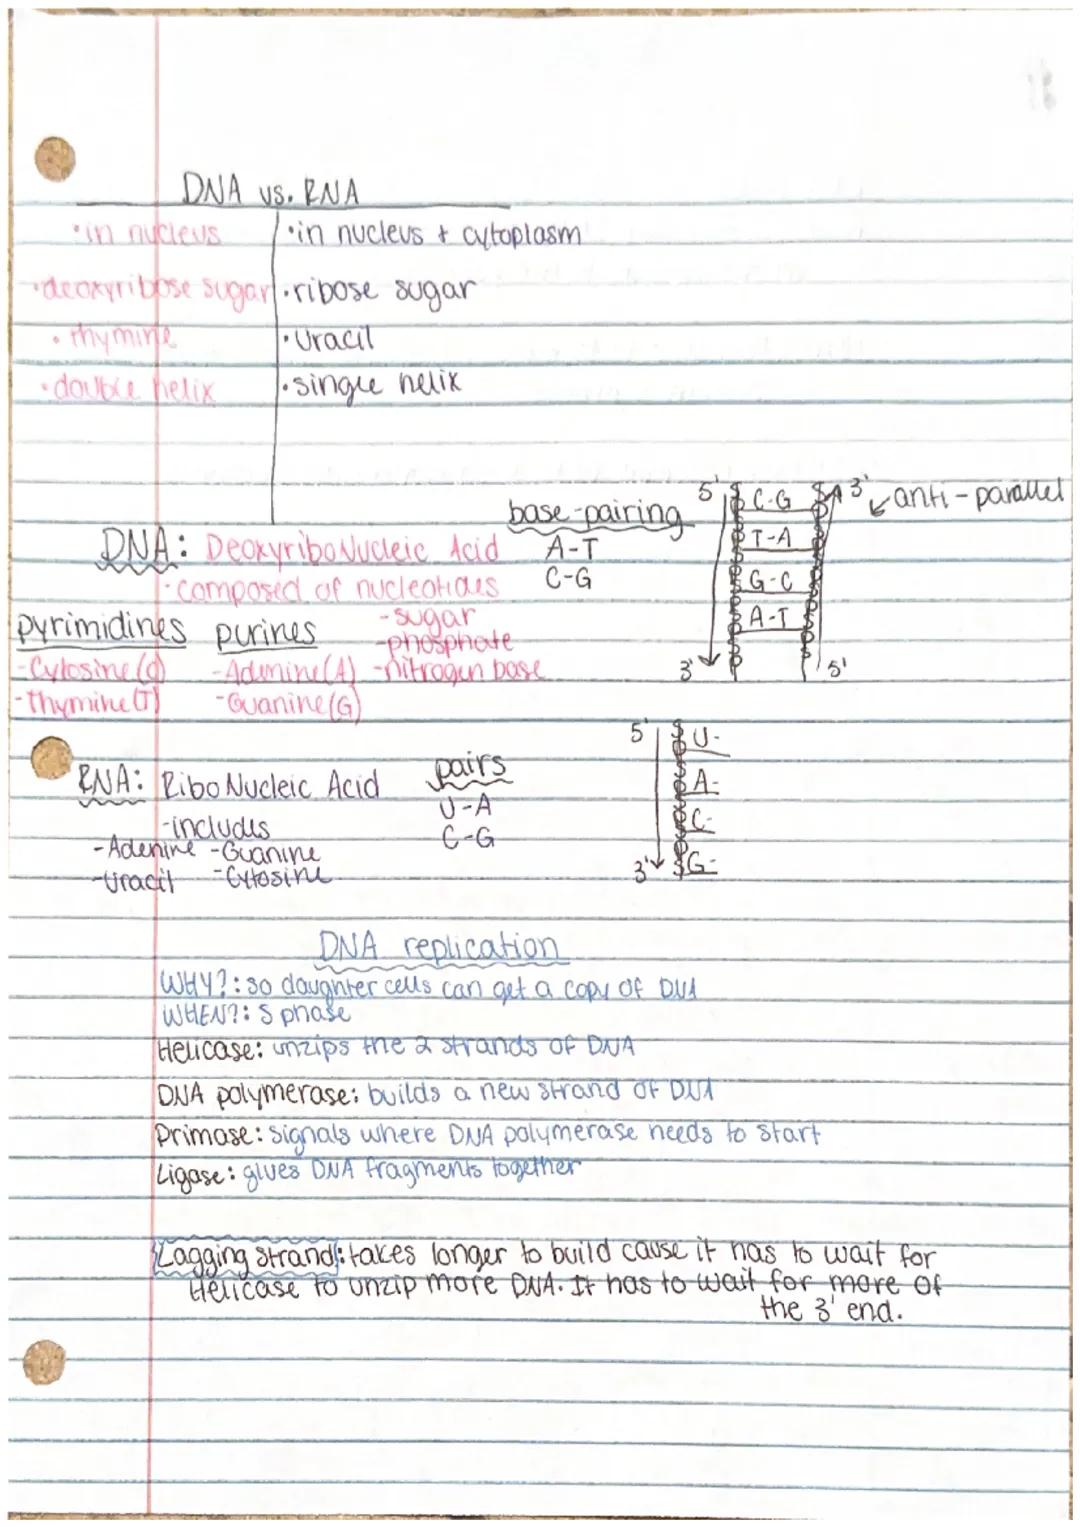 DNA vs. RNA
•in nucleus •in nucleus + cytoplasm
•deoxyribose sugar •ribose sugar
•thymine •Uracil
•double helix •single helix
5' C-G 3' anti-parallel
base-pairing
T-A
DNA: DeoxyriboNucleic Acid A-T
•composed of nucleotides C-G G-C
-sugar A-T
pyrimidines purines -phosphate
-Cytosine(C) -Adenine(A) -nitrogen base 3' 5'
-thymine(T) -Guanine(G)
5' U-
RNA: RiboNucleic Acid pairs A-
U-A
-includes C-G C-
-Adenine -Guanine 3' G-
-Uracil -Cytosine
DNA replication
WHY?: so daughter cells can get a copy of DNA
WHEN?: S phase
Helicase: unzips the 2 strands of DNA
DNA polymerase: builds a new strand of DNA
Primase: signals where DNA polymerase needs to start
Ligase: glues DNA fragments together
Lagging strand: takes longer to build cause it has to wait for
Helicase to unzip more DNA. It has to wait for more of
the 3' end.